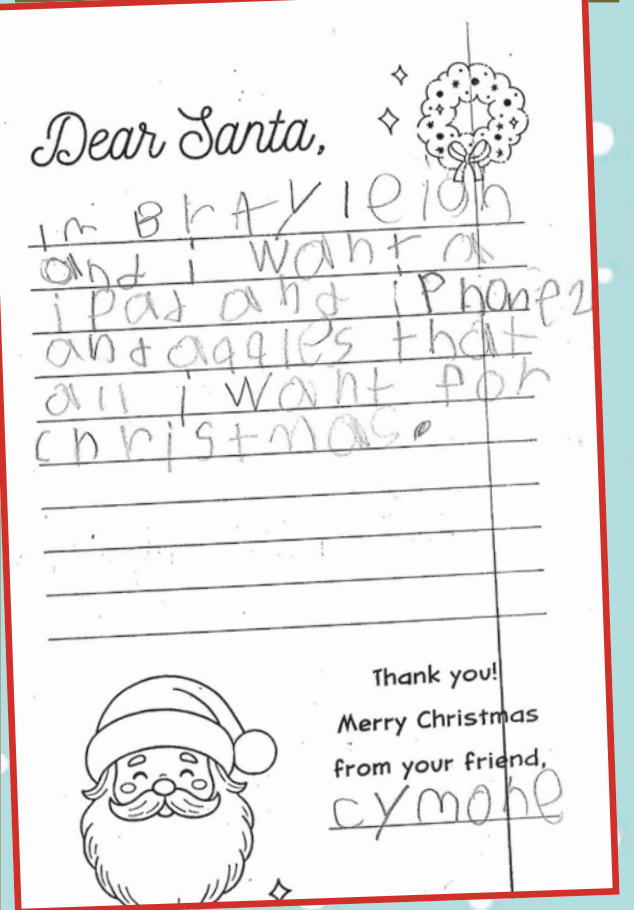 Dear Santa,
im Brayleigh
and i want a
ipad and iPhone2
and aqqles that
all i want for
christmas.
Thank you!
Merry Christmas
from your friend,
cymone